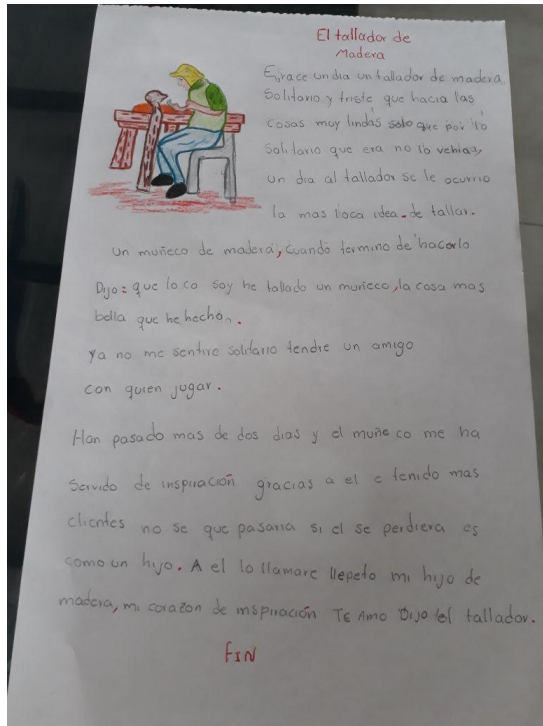 El tallador de
Madera
Erace un dia un tallador de madera
Solitario y triste que hacia las
cosas muy lindas solo que por lo
solitario que era no lo vehian,
un dia al tallador se le ocurrio
la mas loca idea. de tallar.
un muñeco de madera, cuando termino de hacerlo
Dijo: que loco soy he tallado un muñeco, la cosa mas
bella que he hecho.
Ya no me sentire solitario tendre un amigo
con quien jugar.
Han pasado mas de dos dias y el muñeco me ha
Servido de inspiración gracias a el e tenido mas
clientes no se que pasaria si el se perdiera es
como un hijo. A el lo llamare llepeto mi hijo de
madera, mi corazon de inspiración TE AMO Dijo el tallador.
FIN